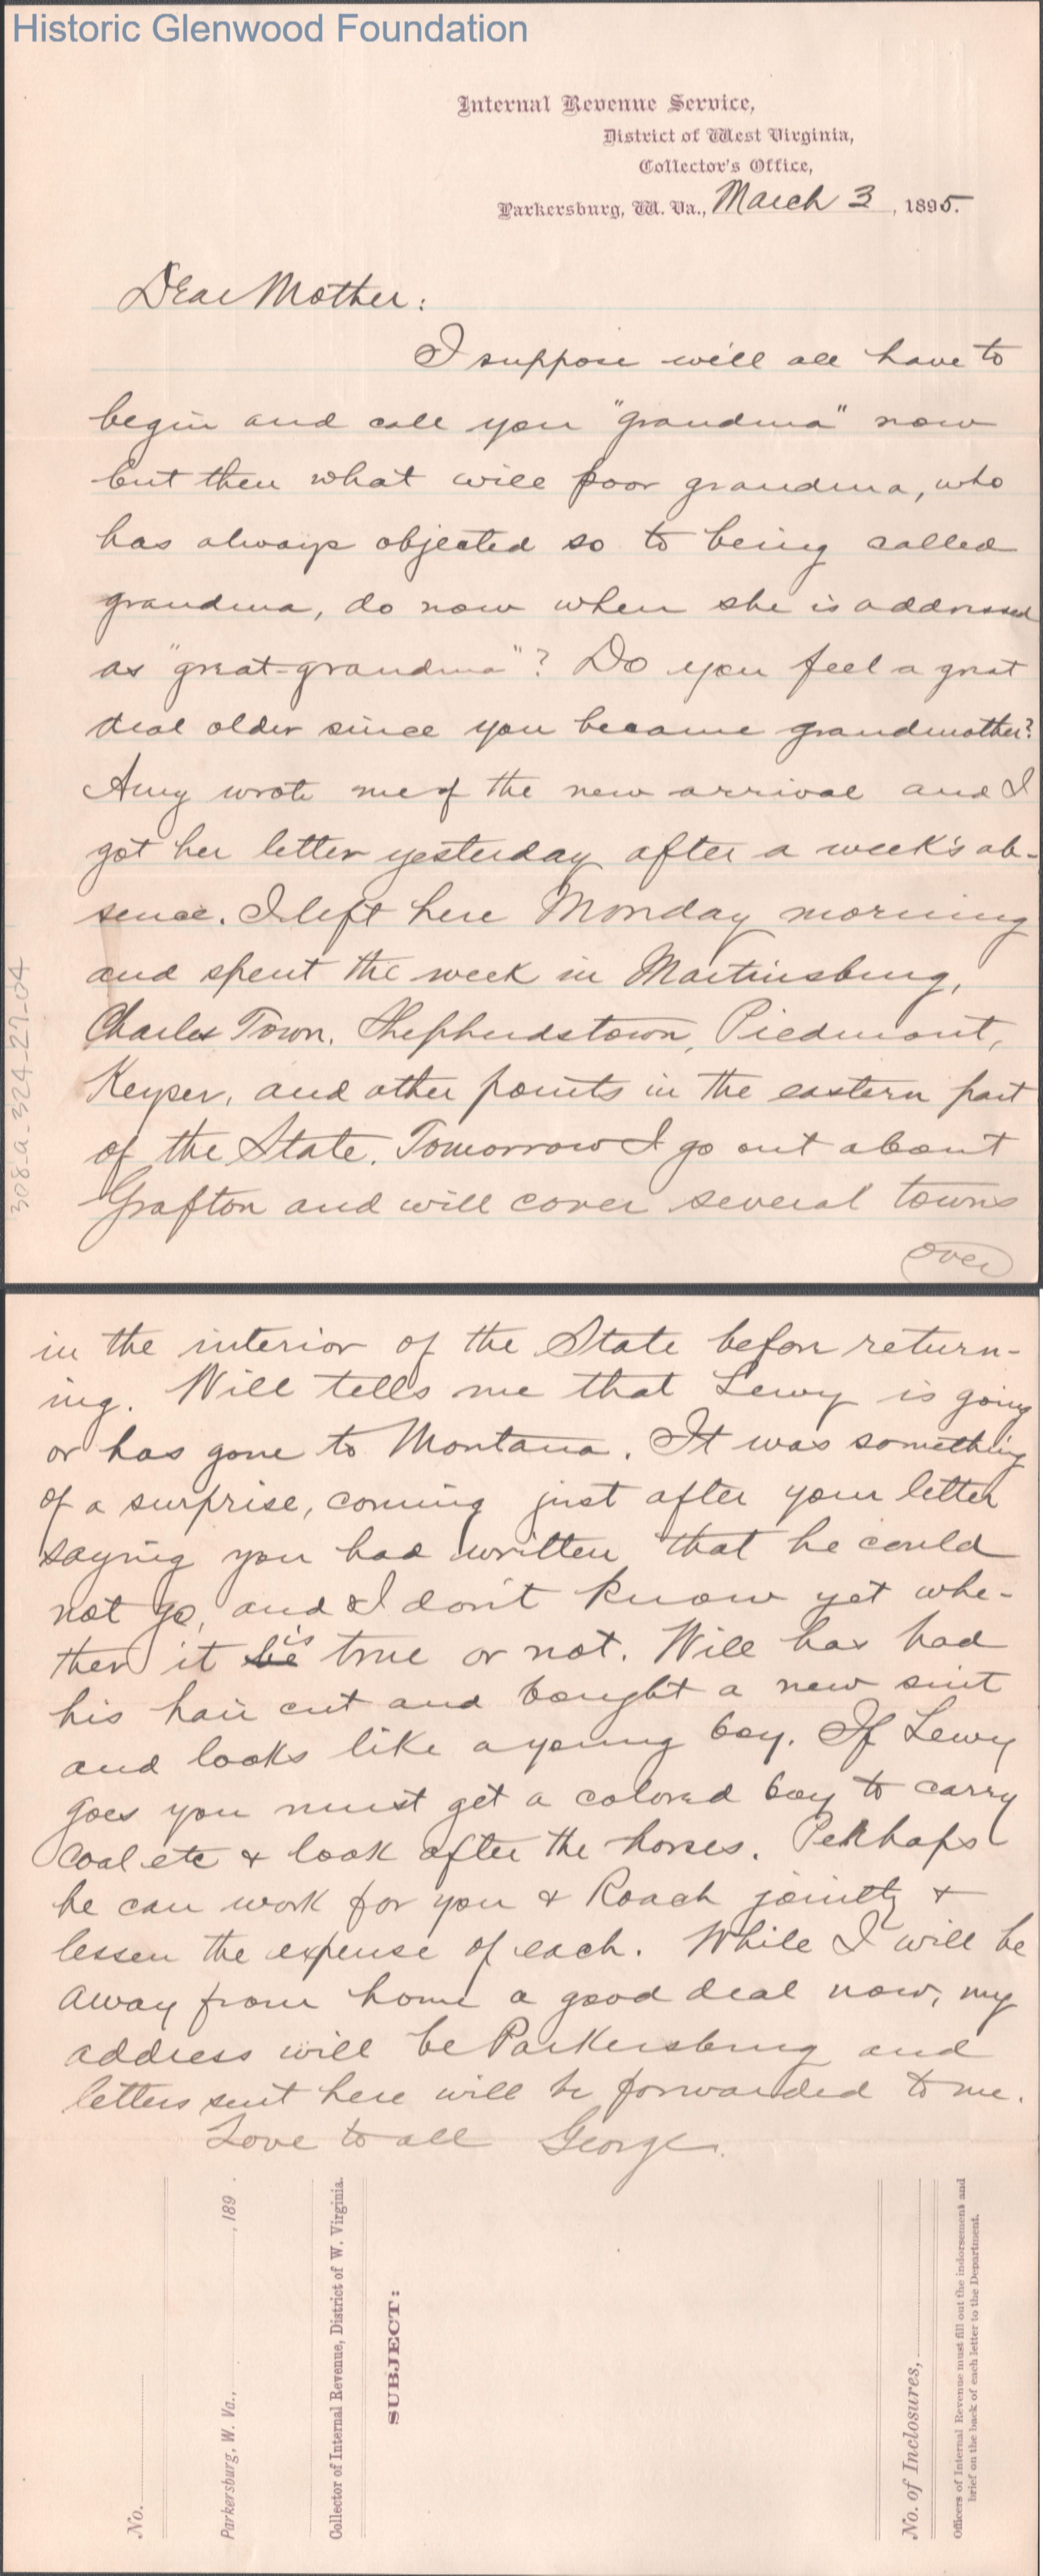 Historic Glenwood Foundation
Internal Revenue Service,
District of West Virginia,
Collector's Office,
Parkersburg, W. Va., March 3, 1895.
Dear Mother:
I suppose will all have to
begin and call you "grandma" now
but then what will poor grandma, who
has always objected so to being called
grandma, do now when she is addressed
as "great-grandma"? Do you feel a great
deal older since you became grandmother?
Amy wrote me of the new arrival and I
got her letter yesterday after a week's ab-
sence. I left here Monday morning
and spent the week in Martinsburg,
Charles Town, Shepherdstown, Piedmont,
Keyser, and other points in the eastern part
of the State. Tomorrow I go out about
Grafton and will cover several towns
over
308-a-324-27-04
in the interior of the State before return-
ing. Will tells me that Lewy is going
or has gone to Montana. It was something
of a surprise, coming just after your letter
saying you had written that he could
not go, and I don't know yet whe-
ther it be is true or not. Will has had
his hair cut and bought a new suit
and looks like a young boy. If Lewy
goes you must get a colored boy to carry
coal etc & look after the horses. Perhaps
he can work for you & Roach jointly &
lessen the expense of each. While I will be
away from home a good deal now, my
address will be Parkersburg and
letters sent here will be forwarded to me.
Love to all George.
No.
Parkersburg, W. Va., , 189 .
Collector of Internal Revenue, District of W. Virginia.
SUBJECT:
No. of Inclosures,
Officers of Internal Revenue must fill out the indorsement and
brief on the back of each letter to the Department.